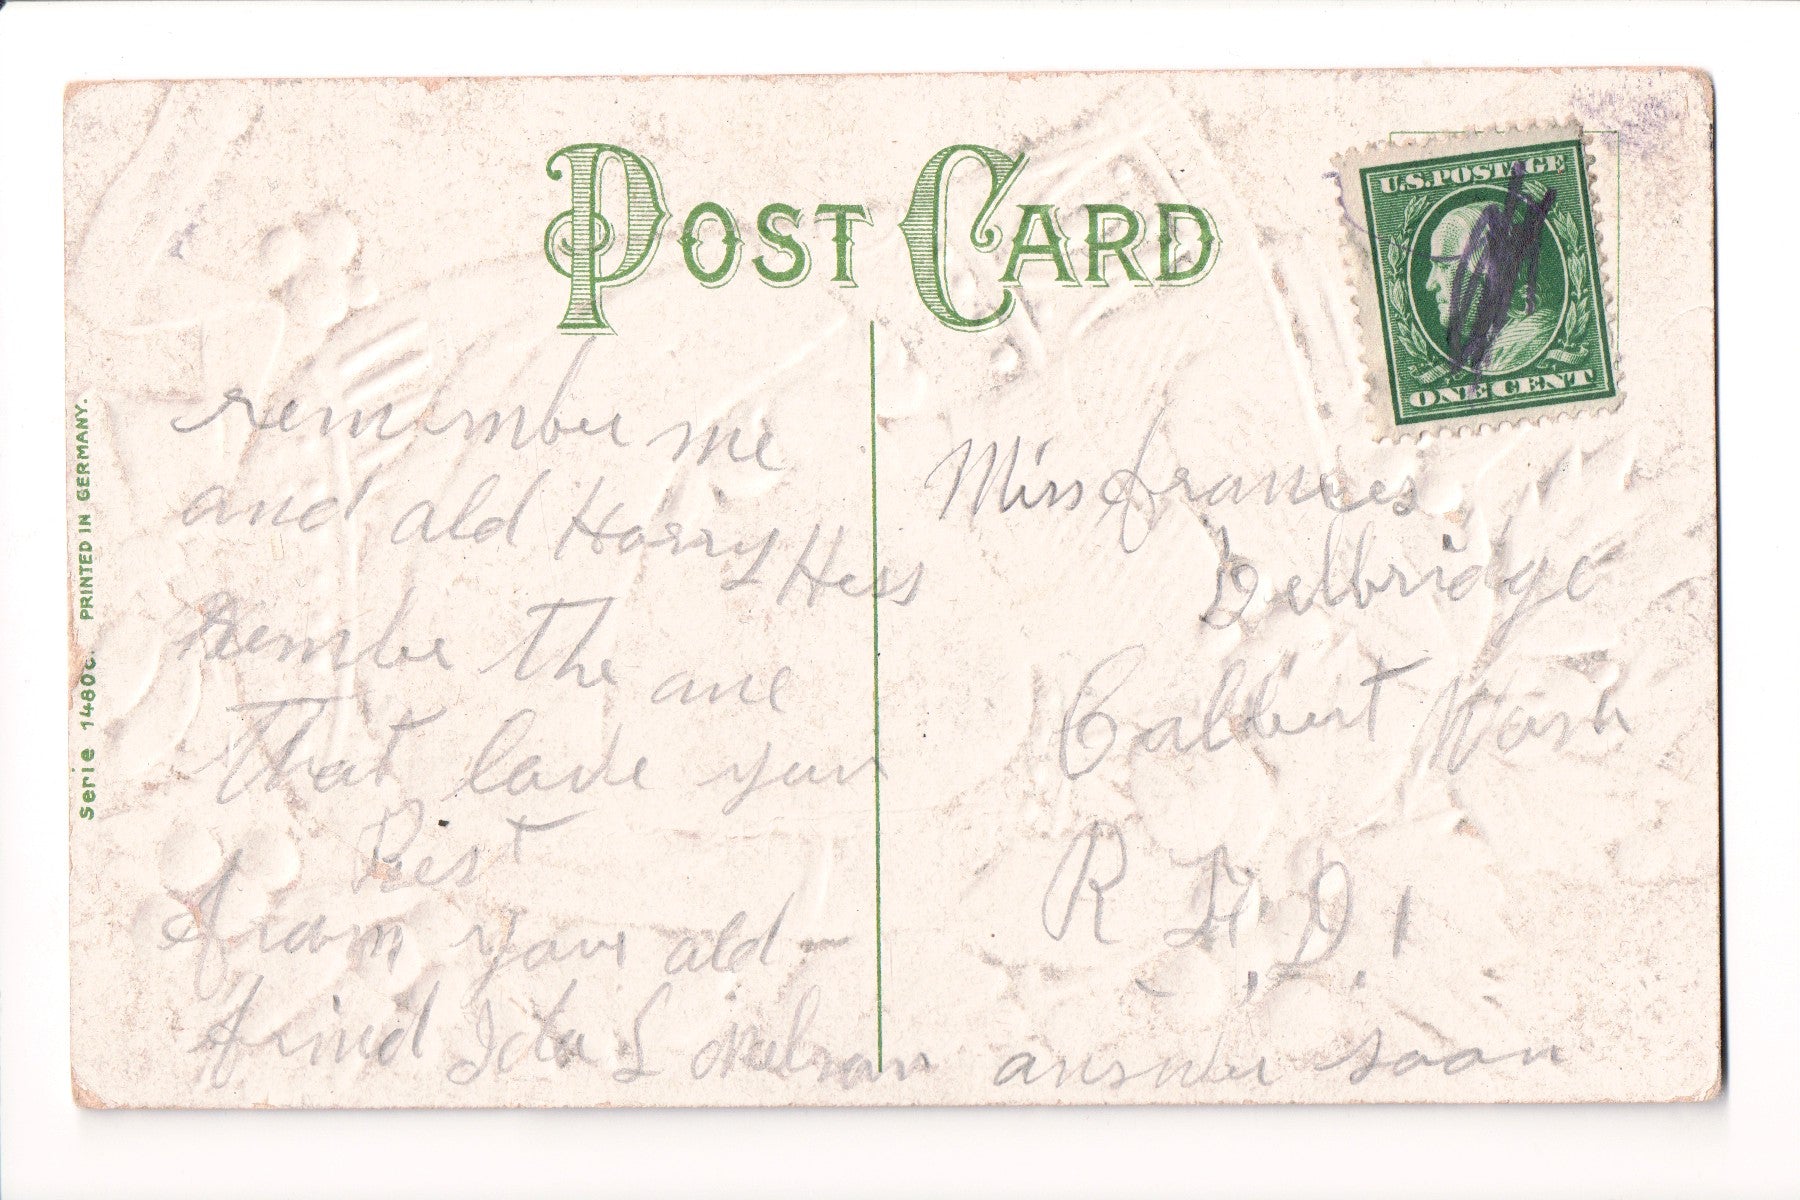 POST CARD
U.S. POSTAGE
ONE CENT
Serie 1480c. PRINTED IN GERMANY.
remember me
and old Harry Hess
Rembe the one
That love you
Best
from your old
friend Ida L Nelson
answer soon
Miss Frances
Delbridge
Calbert Wash
R. F. D. 1